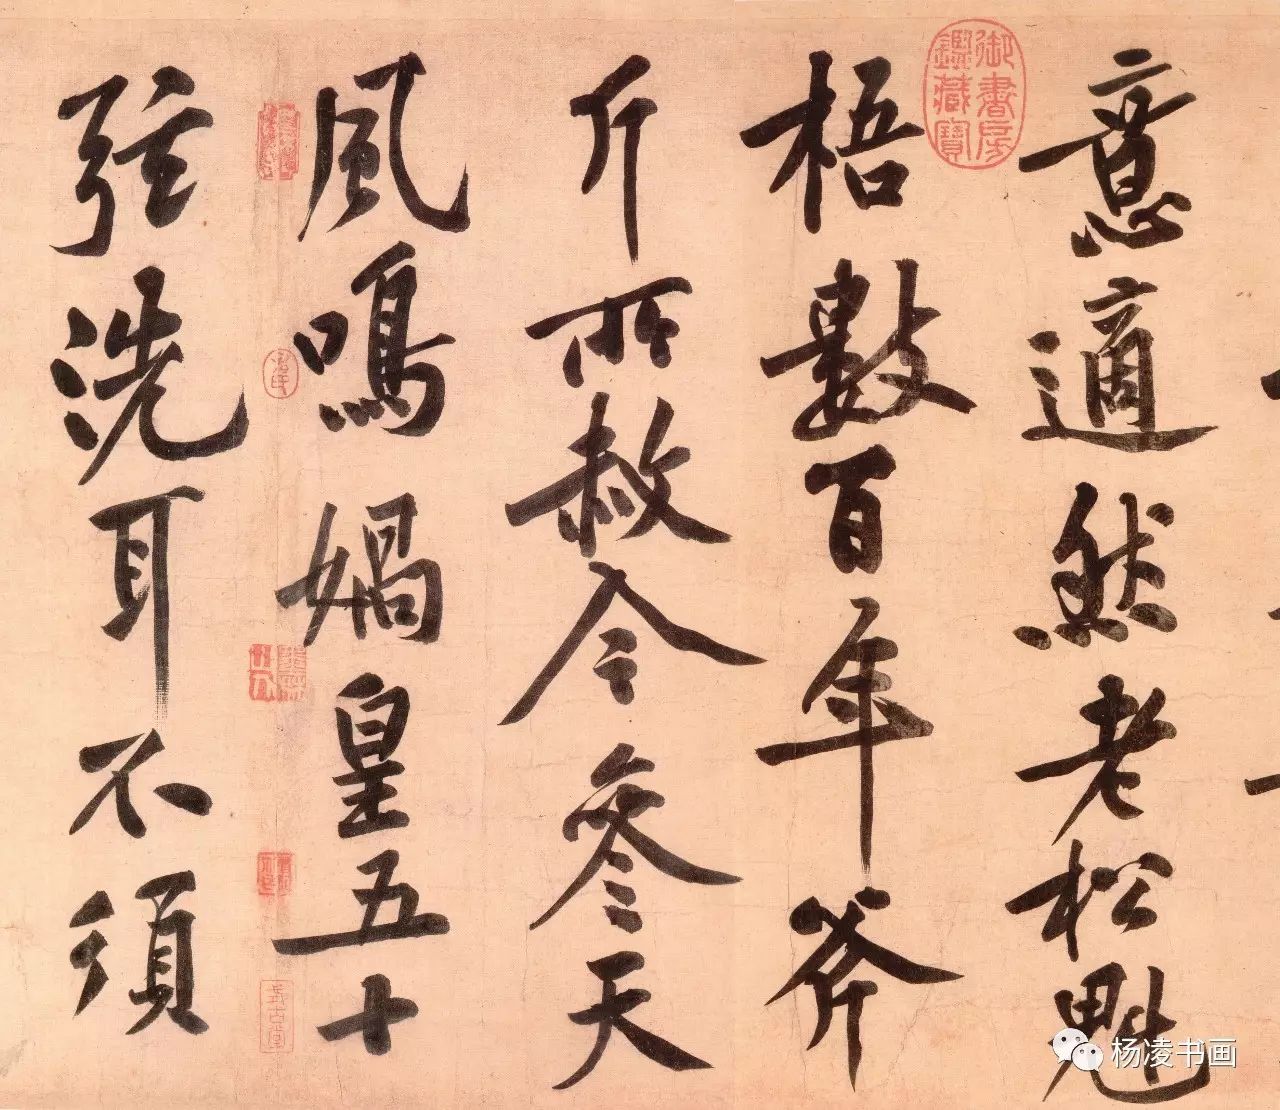 意適然老松魁
梧數百年斧
斤所赦今參天
風鳴媧皇五十
弦洗耳不須
御書房
鑑藏寶
式古堂
杨凌书画